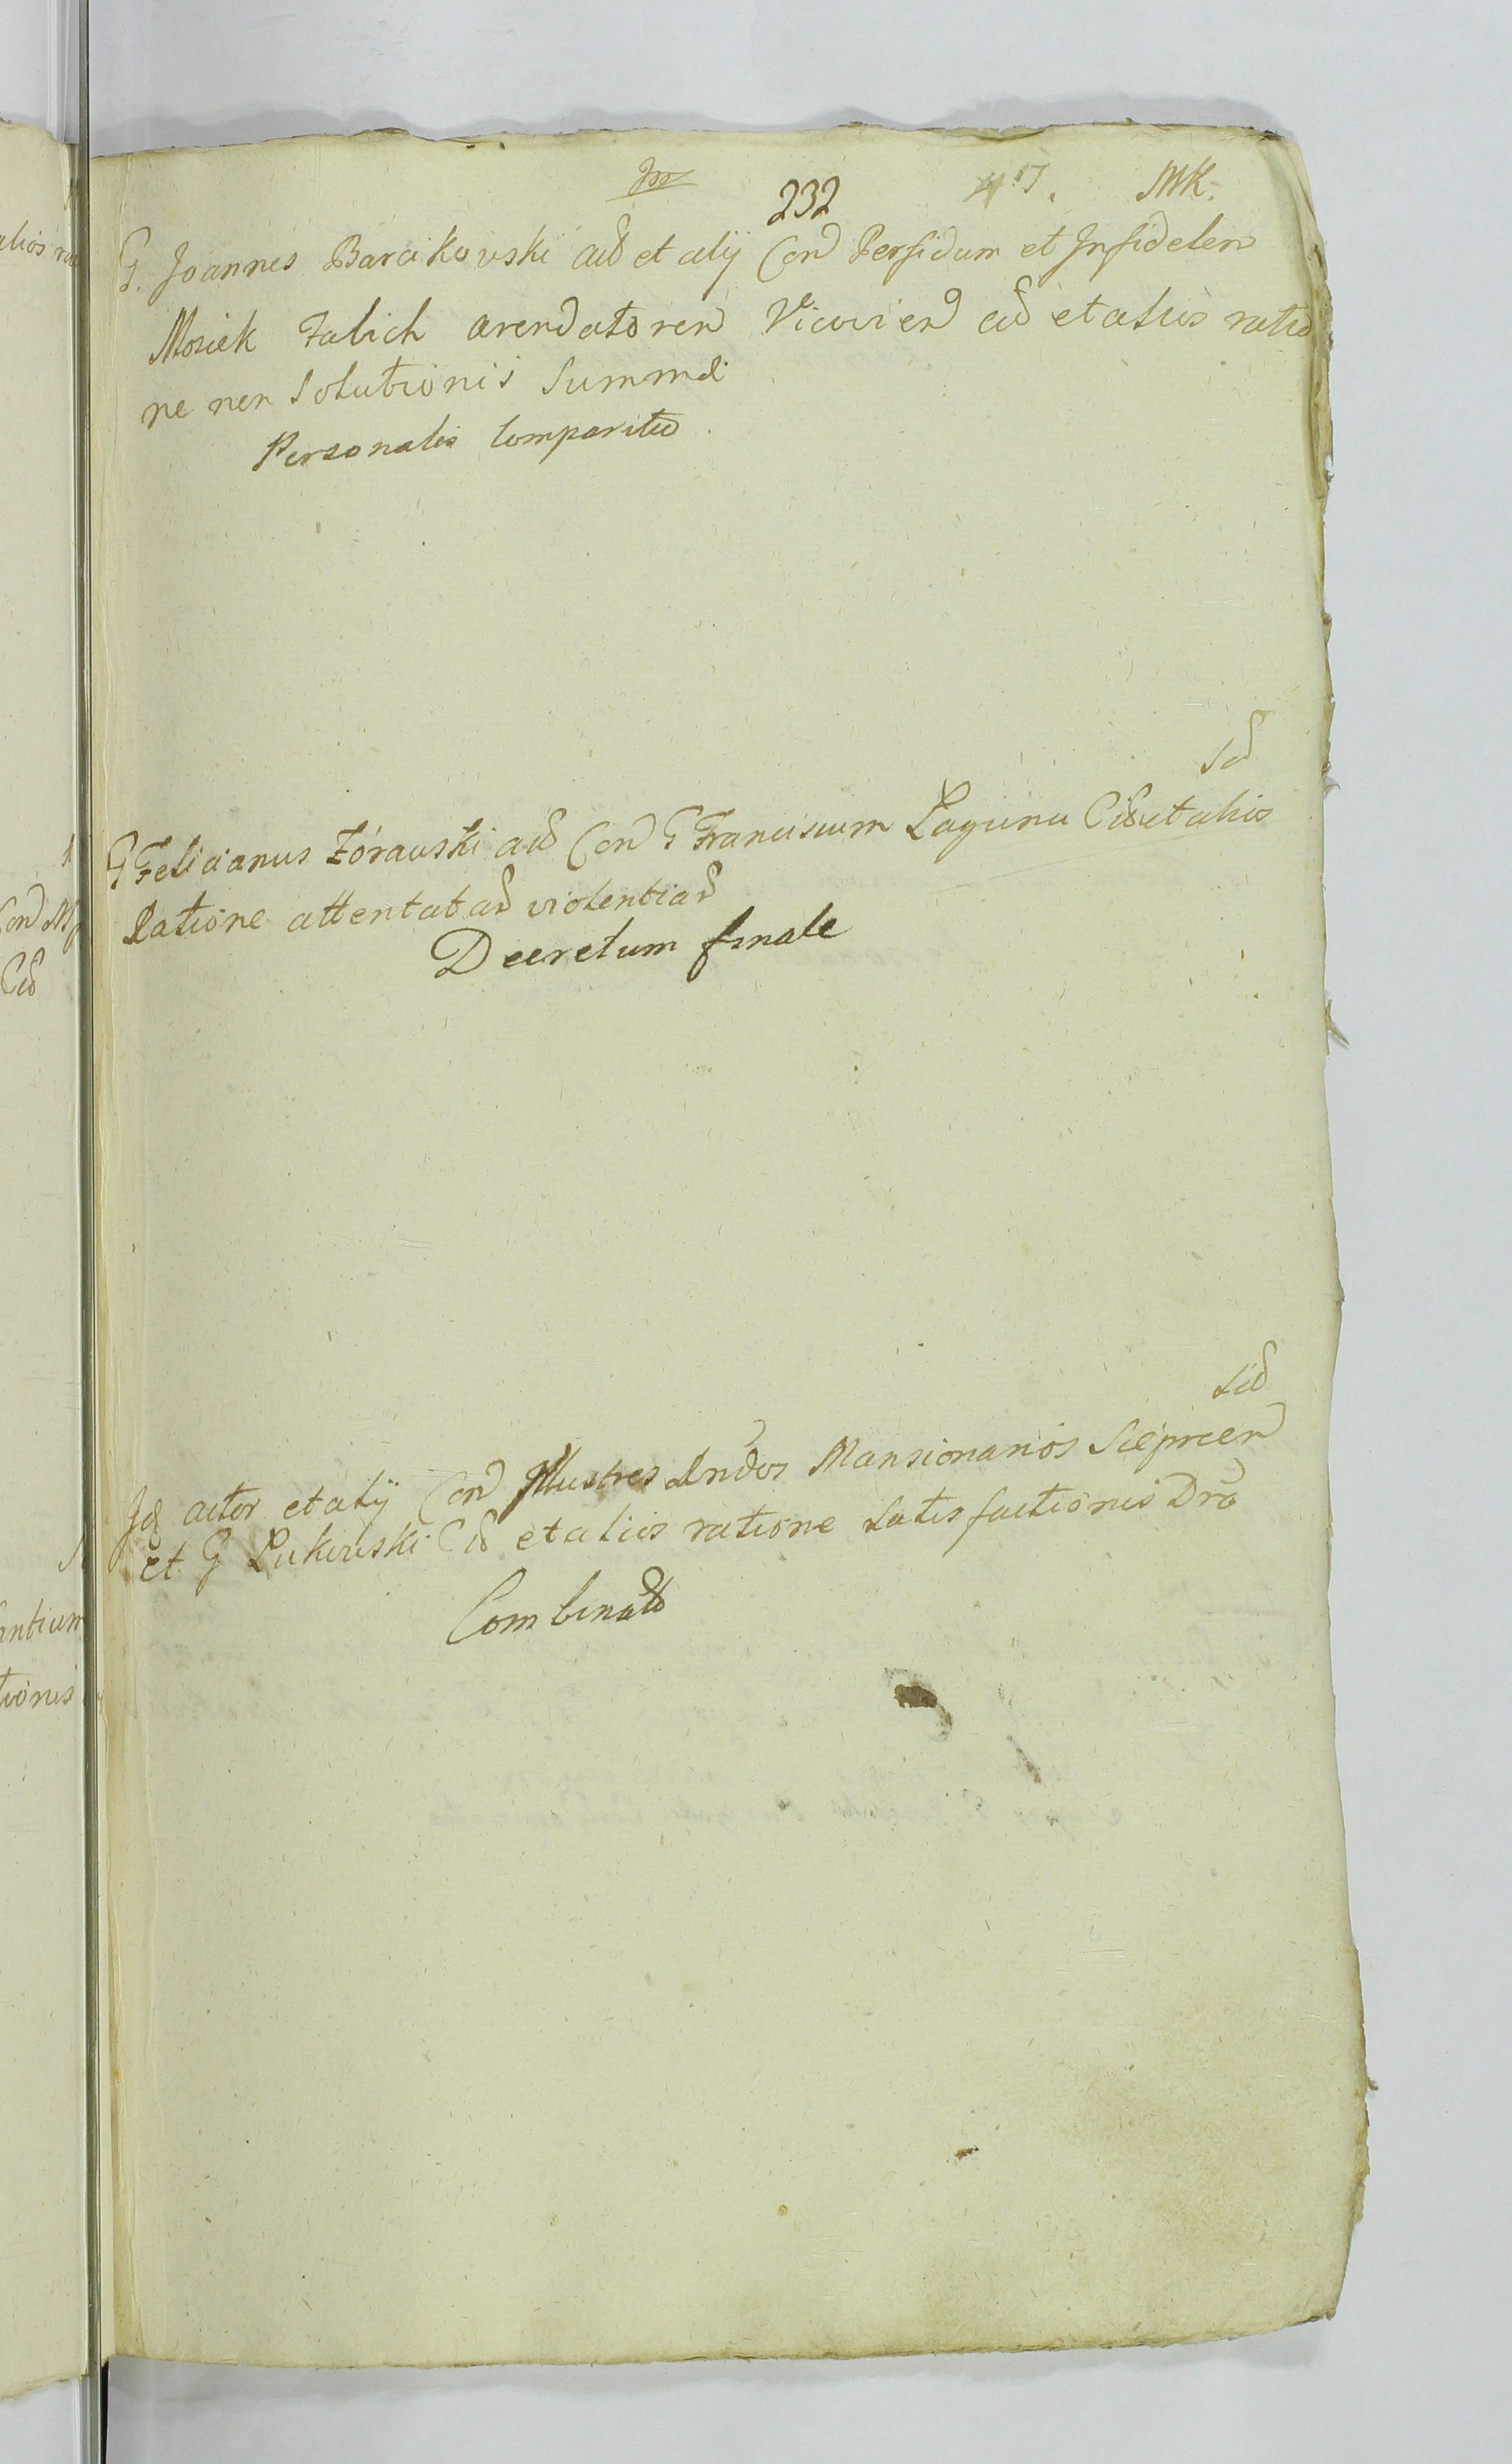 232 47. MK.
G. Joannes Barcikowski aẽ et alij Con Perfidum et Infidelen
Mosiek Falich arendatoren Vicovien eũ et alius ratio
ne non Solutionis Summæ
Personalis Comparitio.
Sẽ
G Felicianus Żórawski aẽ Con G Franciscum Łaguna Cẽ et alios
Ratione attentatæ violentiæ
Decretum finale
Sẽ
Id actor et alij Con Illustres Rndos Mansionarios Sieprcen
et G Łukowski Cẽ et alios ratione Satisfactionis Dro
Combinatẽ
alios
Con
Cẽ
antium
tionis